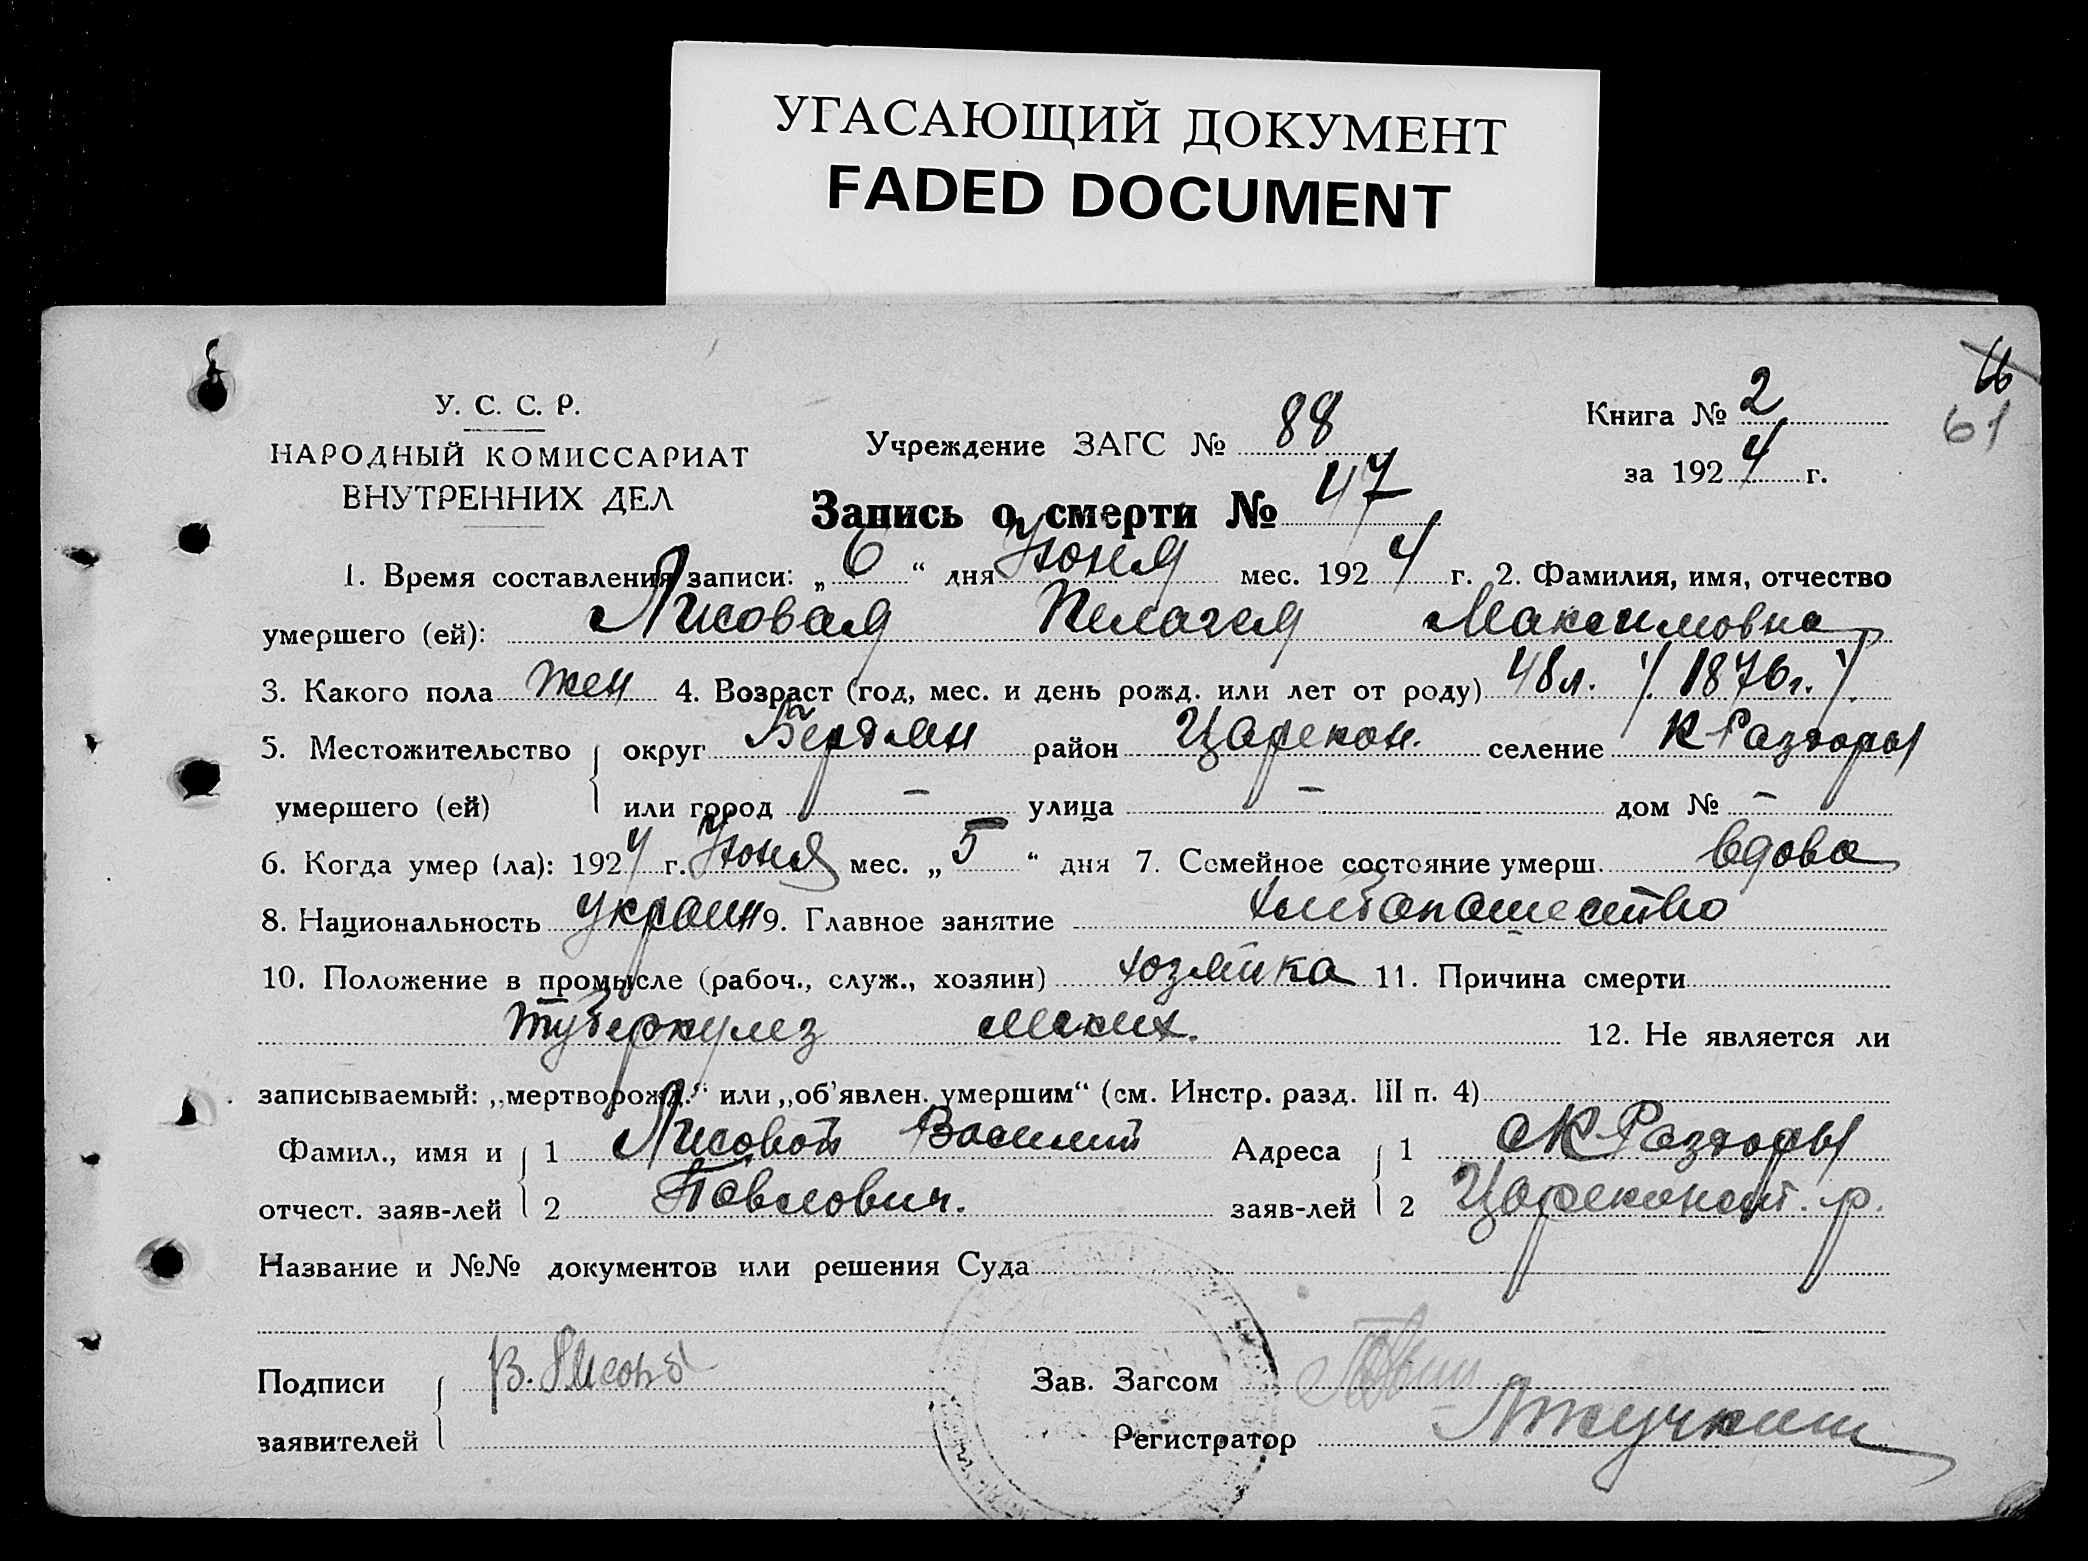 УГАСАЮЩИЙ ДОКУМЕНТ
FADED DOCUMENT
У. С. С. Р.
НАРОДНЫЙ КОМИССАРИАТ
ВНУТРЕННИХ ДЕЛ
Учреждение ЗАГС № 88
Книга № 2
61
за 1924 г.
Запись о смерти № 47
1. Время составления записи: „6“ дня Июня мес. 1924 г. 2. Фамилия, имя, отчество
умершего (ей): Лисовая Пелагея Максимовна
3. Какого пола жен 4. Возраст (год, мес. и день рожд. или лет от роду) 48 л. /1876 г./
5. Местожительство округ Бердян район Царекон. селение К-Разоры
умершего (ей) или город – улица – дом № –
6. Когда умер (ла): 1924 г. Июня мес. „5“ дня 7. Семейное состояние умерш. вдова
8. Национальность украин 9. Главное занятие хлебопашество
10. Положение в промысле (рабоч., служ., хозяин) хозяйка 11. Причина смерти
туберкулез легких. 12. Не является ли
записываемый: „мертворожд.“ или „об’явлен. умершим“ (см. Инстр. разд. III п. 4)
Фамил., имя и 1 Лисовой Василий Адреса 1 с К-Разоры
отчест. заяв-лей 2 Павлович. заяв-лей 2 Цареконст. р.
Название и №№ документов или решения Суда
Подписи В. Лисовой Зав. Загсом
заявителей Регистратор